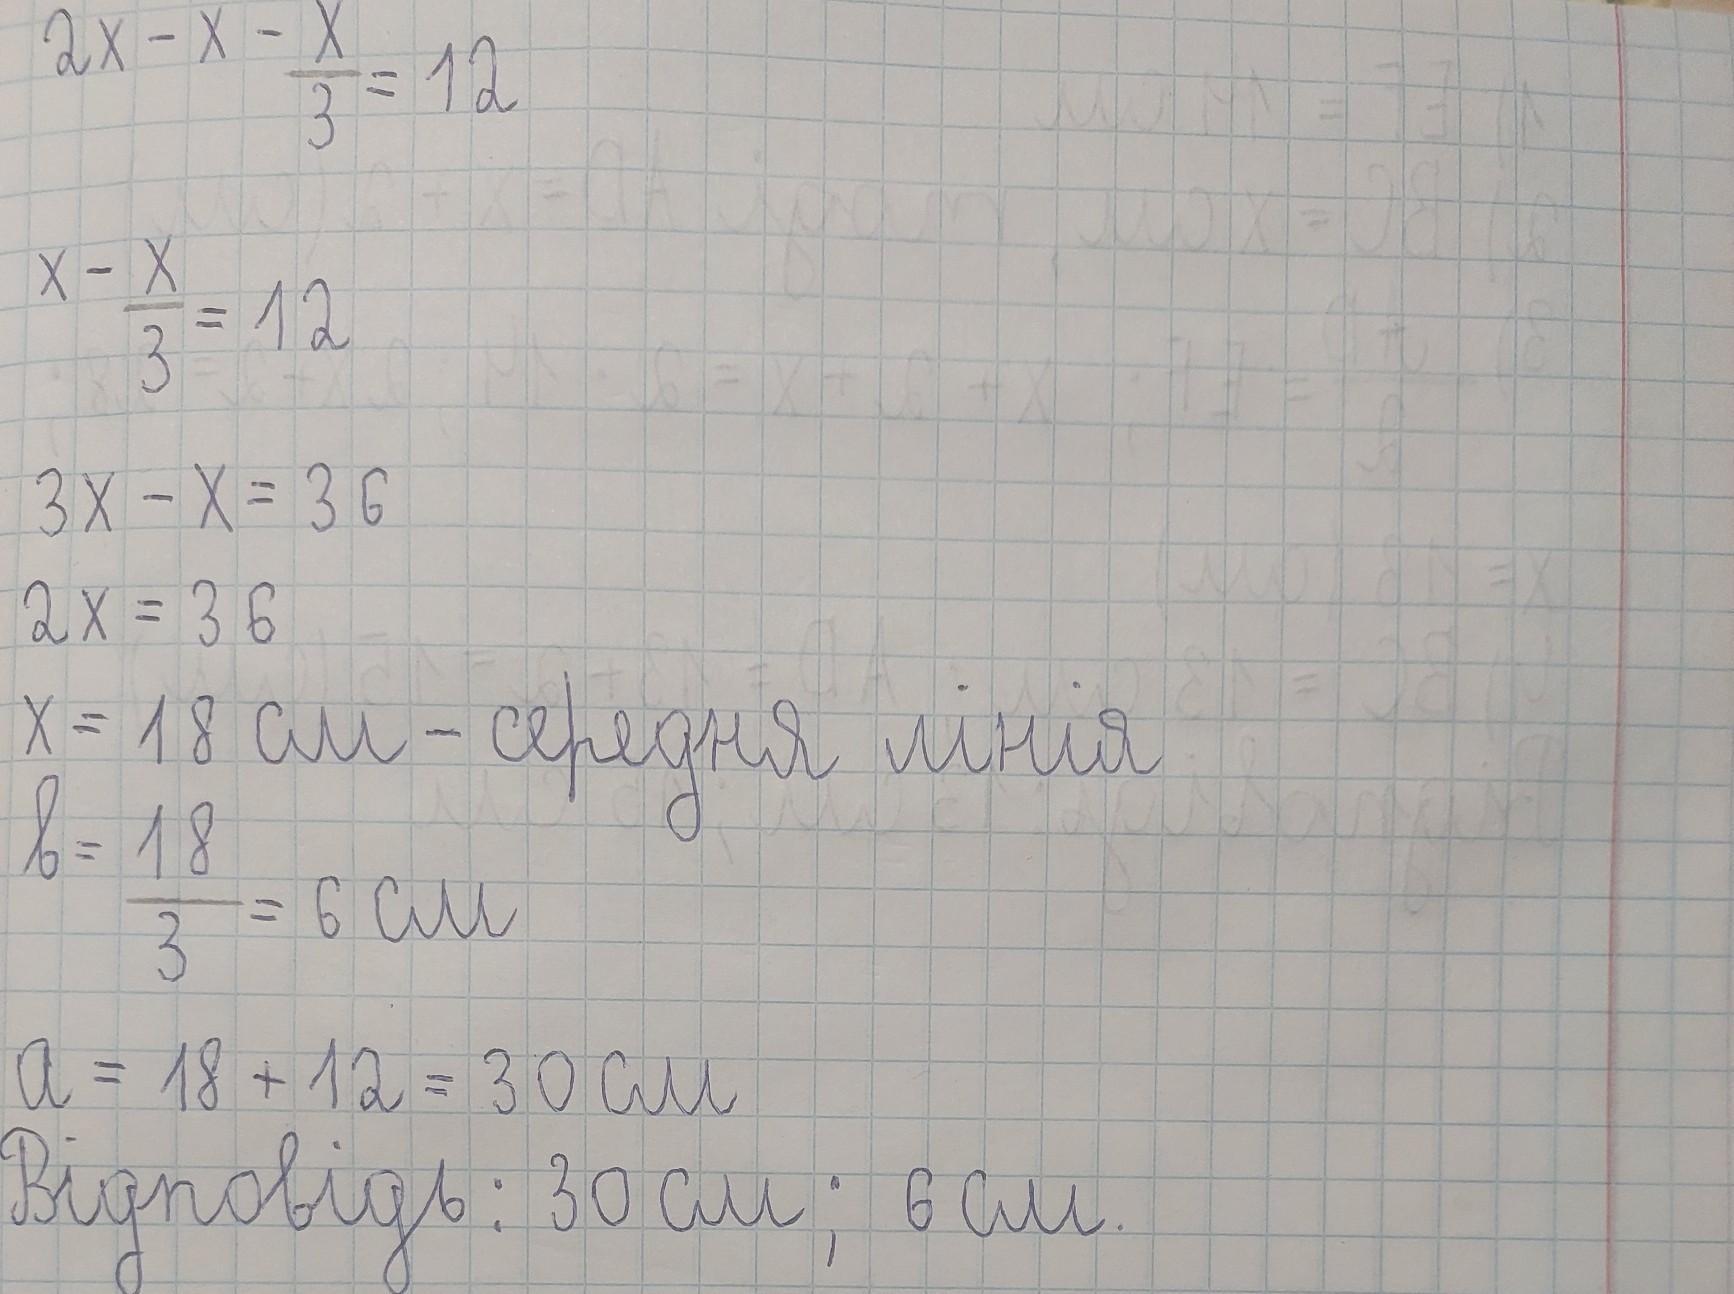 2x - x - x/3 = 12
x - x/3 = 12
3x - x = 36
2x = 36
x = 18 см - середня лінія
b = 18/3 = 6 см
a = 18 + 12 = 30 см
Відповідь: 30 см; 6 см.